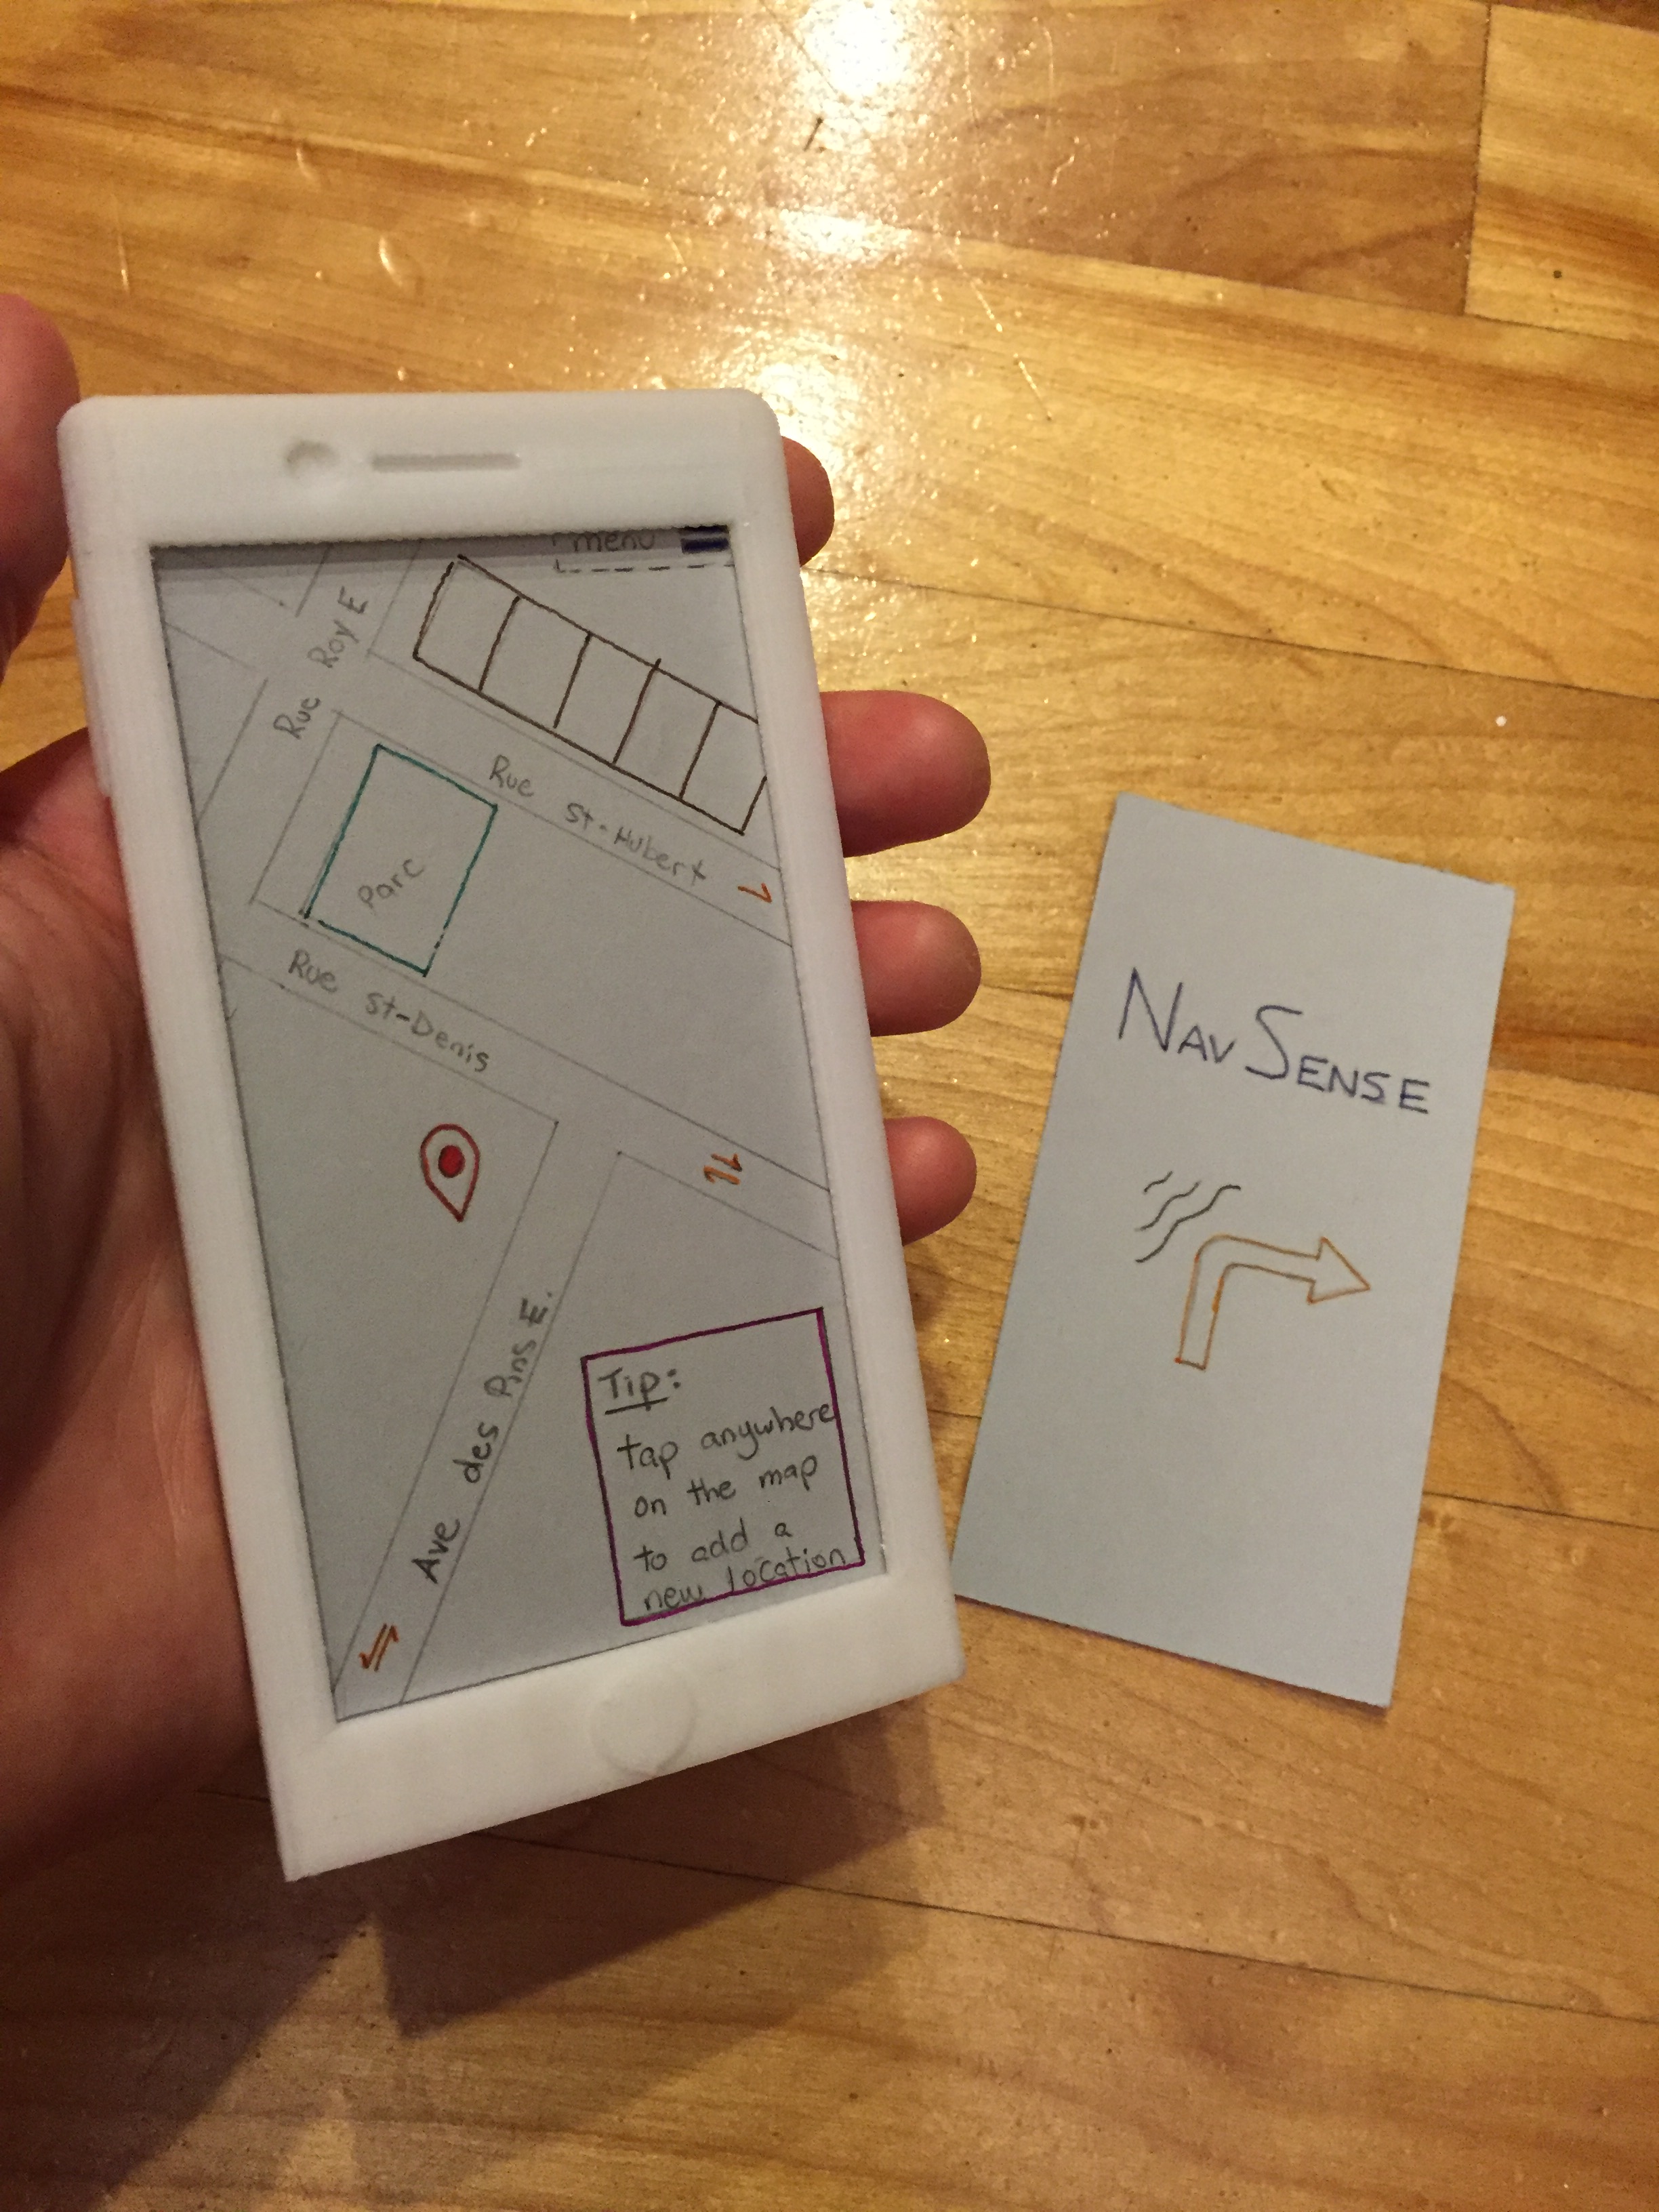 menu
Rue Roy E
Rue St-Hubert
Parc
Rue St-Denis
Ave des Pins E.
Tip:
tap anywhere
on the map
to add a
new location
NAVSENSE